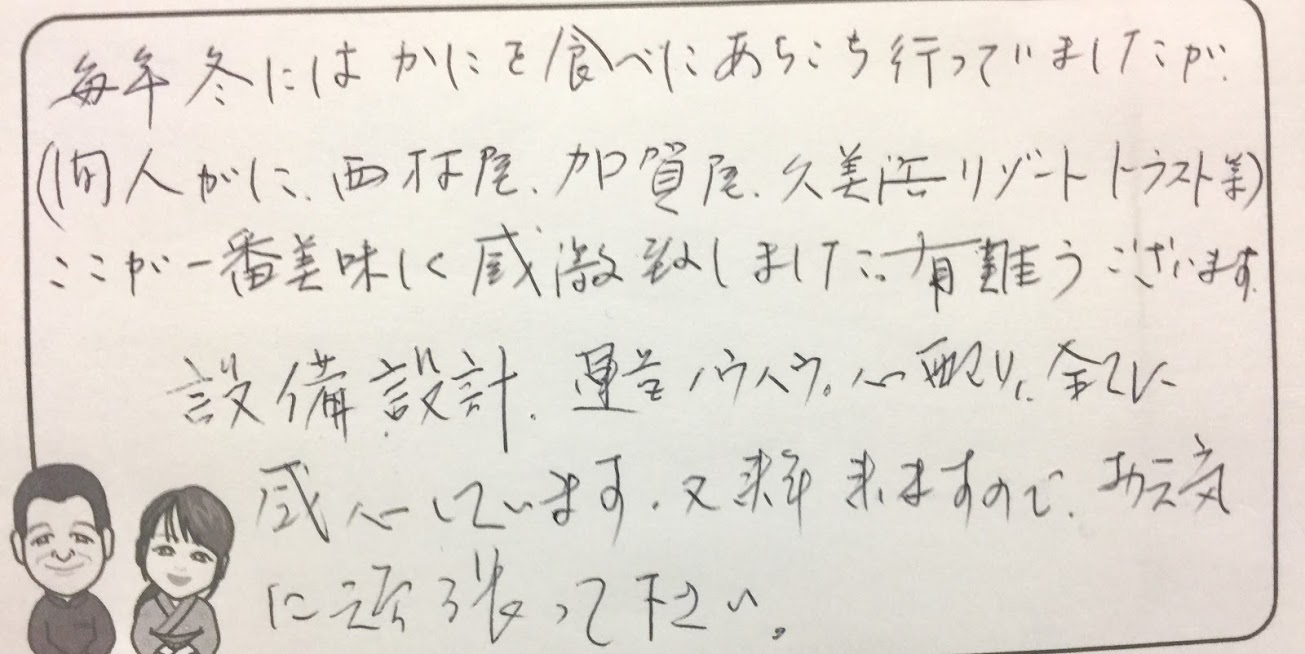 毎年冬にはかにを食べにあちこち行っていましたが、
(間人がに、西村屋、加賀屋、久美浜リゾートトラスト等)
ここが一番美味しく感激致しました。有難うございます。
設備設計、運営ノウハウ。心配り、全てに
感心しています。又来年来ますので、お元気
に頑張って下さい。